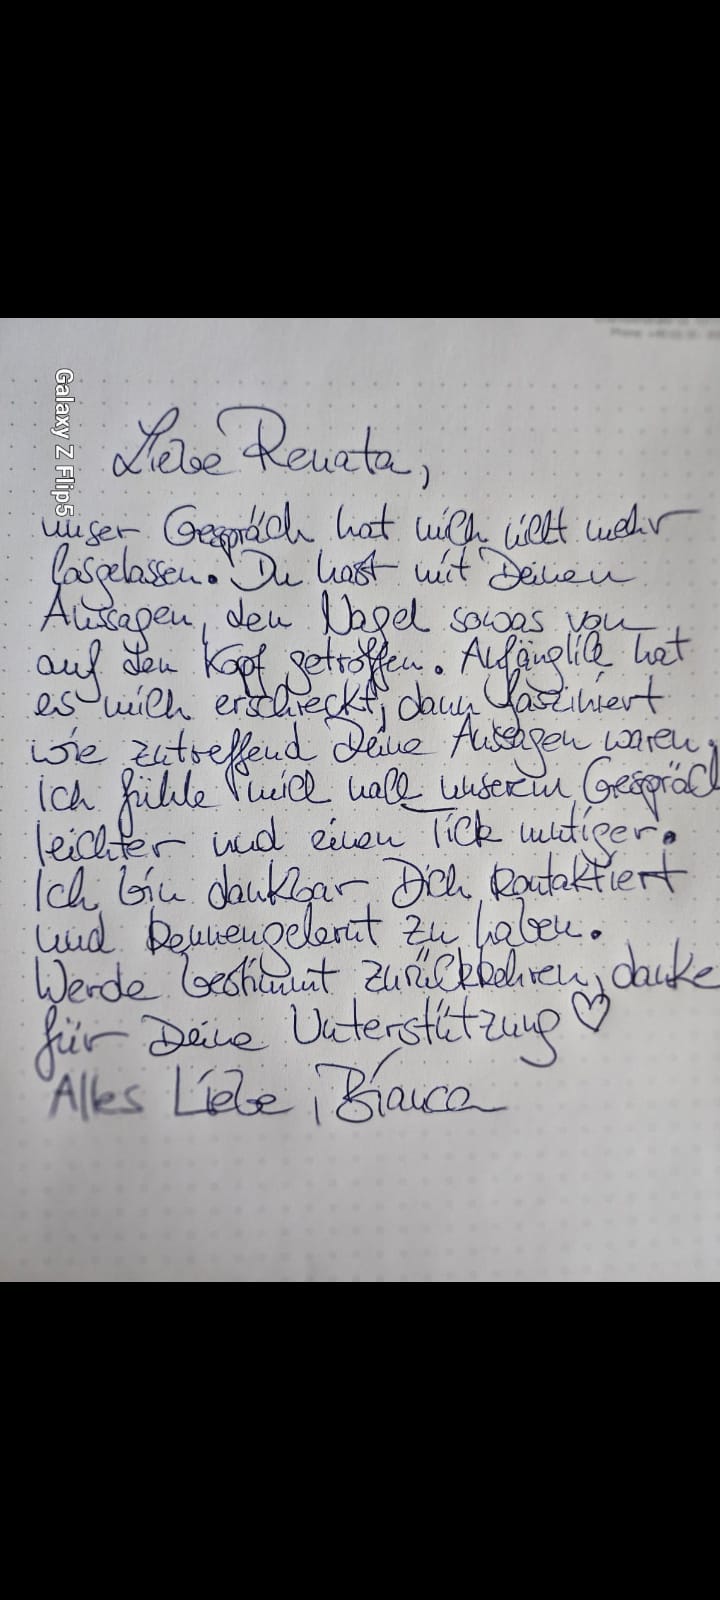 Liebe Renata,
unser Gespräch hat mich nicht mehr
losgelassen. Du hast mit Deinen
Aussagen, den Nagel sowas von
auf den Kopf getroffen. Anfänglich hat
es mich erschreckt, dann fasziniert
wie zutreffend Deine Aussagen waren.
Ich fühle mich nach unserem Gespräch
leichter und einen Tick mutiger.
Ich bin dankbar Dich kontaktiert
und kennengelernt zu haben.
Werde bestimmt zurückkehren, danke
für Deine Unterstützung ♡
Alles Liebe, Bianca
Galaxy Z Flip5